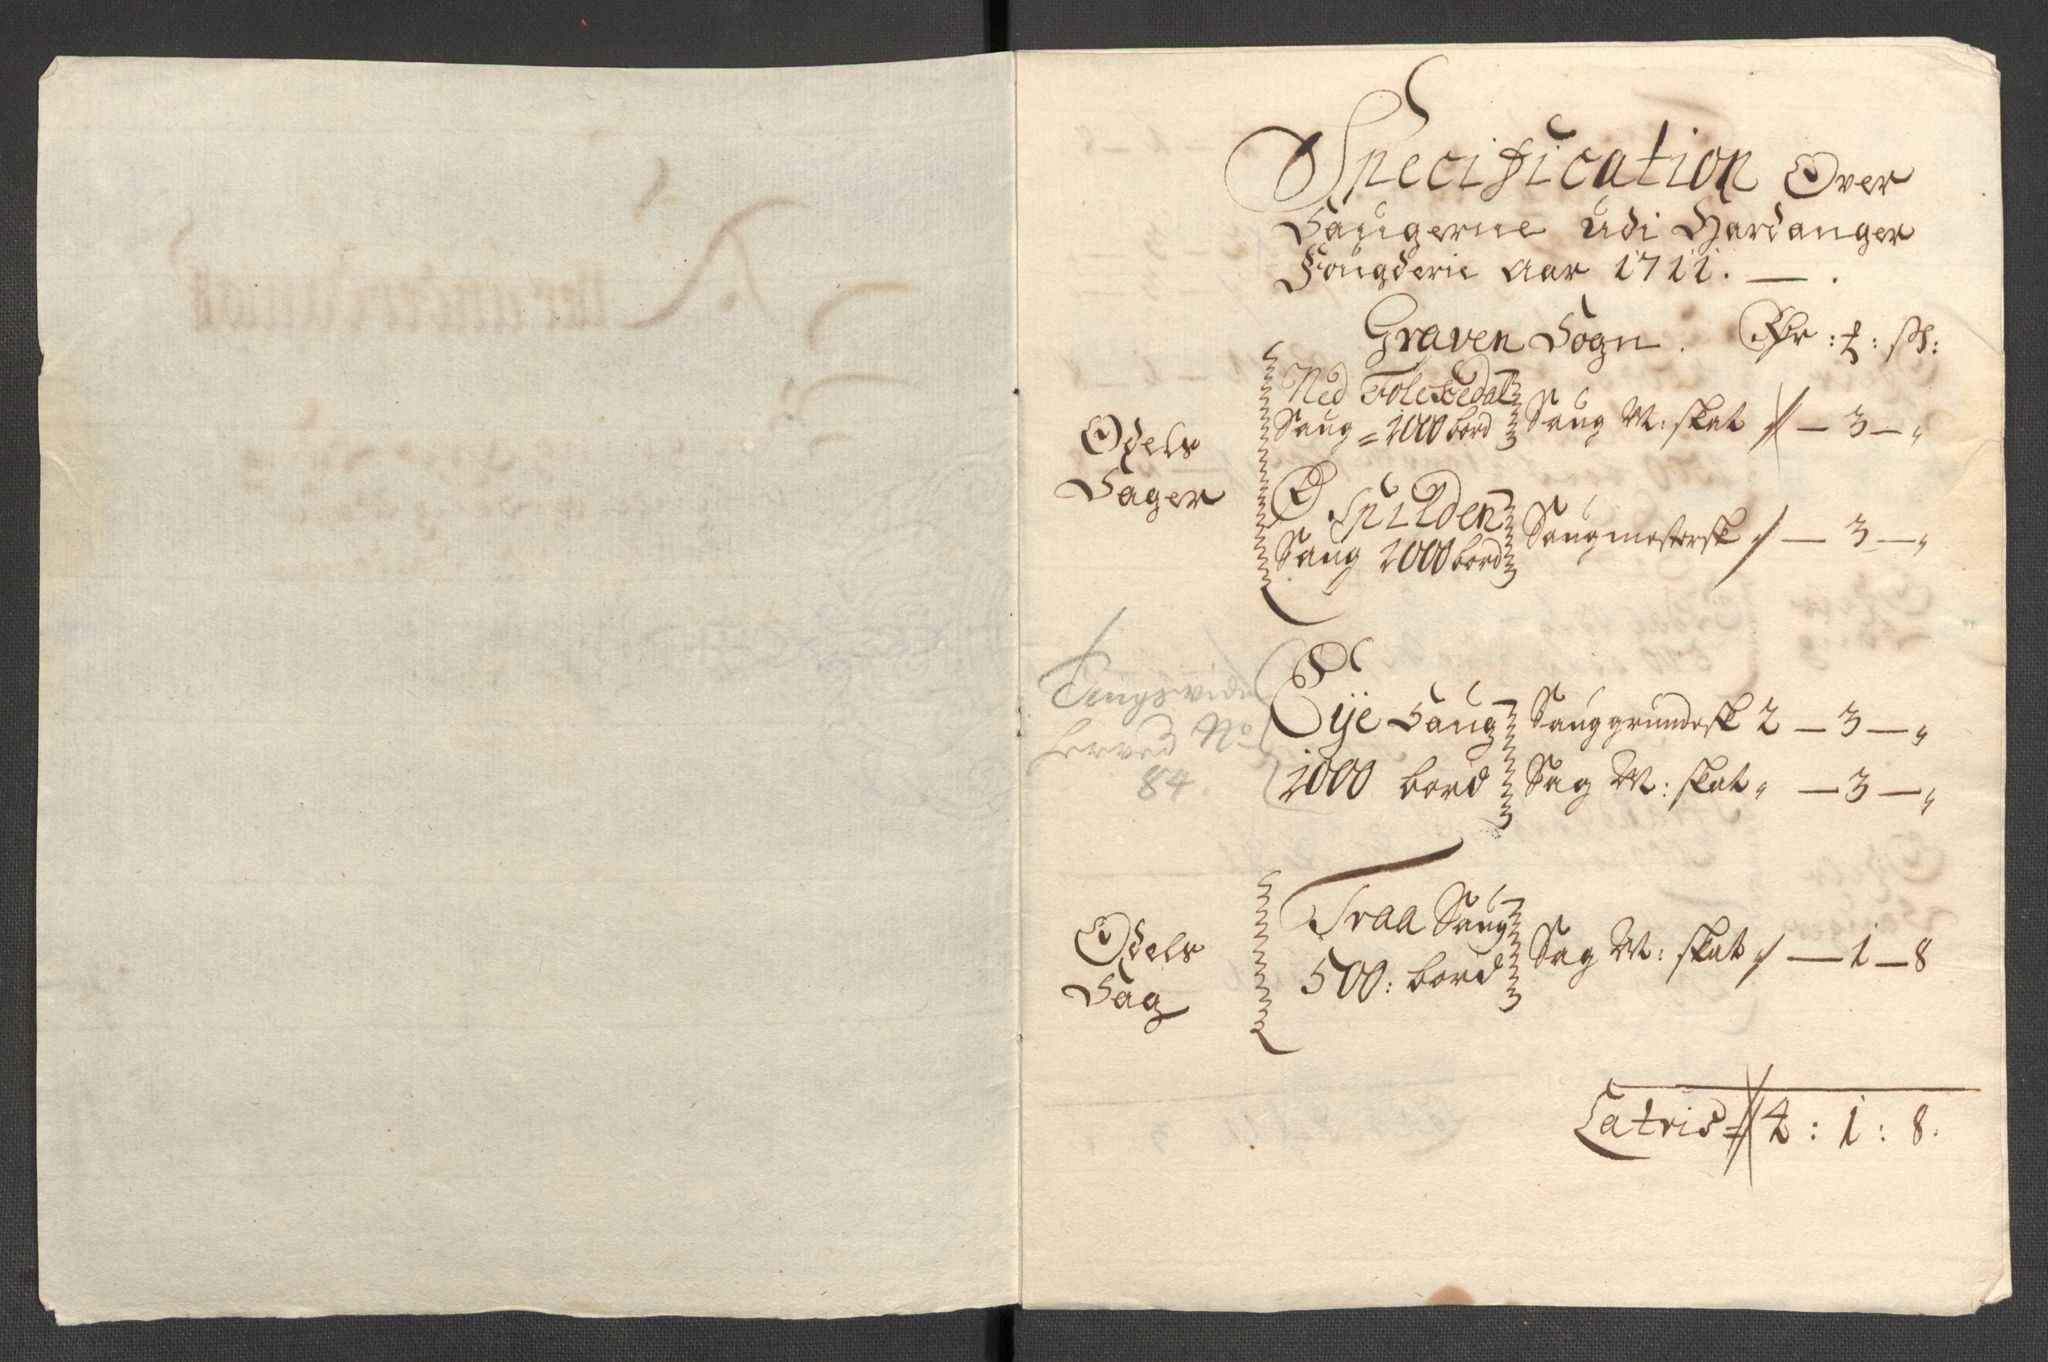 Specification Over
Saugerne udi Hardanger
Fougderie Aar 1711.
Graven Sogn. Rdr : # : ß:
Odels
Sager
Ned Folckedal
Saug = 1000 bord
Saug M: skat // — 3 — „
Spilden
Saug 1000 bord
Saugmestersk // — 3 — „
Tingsvidne
herved No
84.
Eije Saug
1000 bord
Sauggrundesk 2 — 3 — „
Sag M: skat „ — 3 — „
Odels
Sag
Traa Saug
500: bord
Sag M: skat // — 1 — 8
Latris = 4 : 1 : 8.